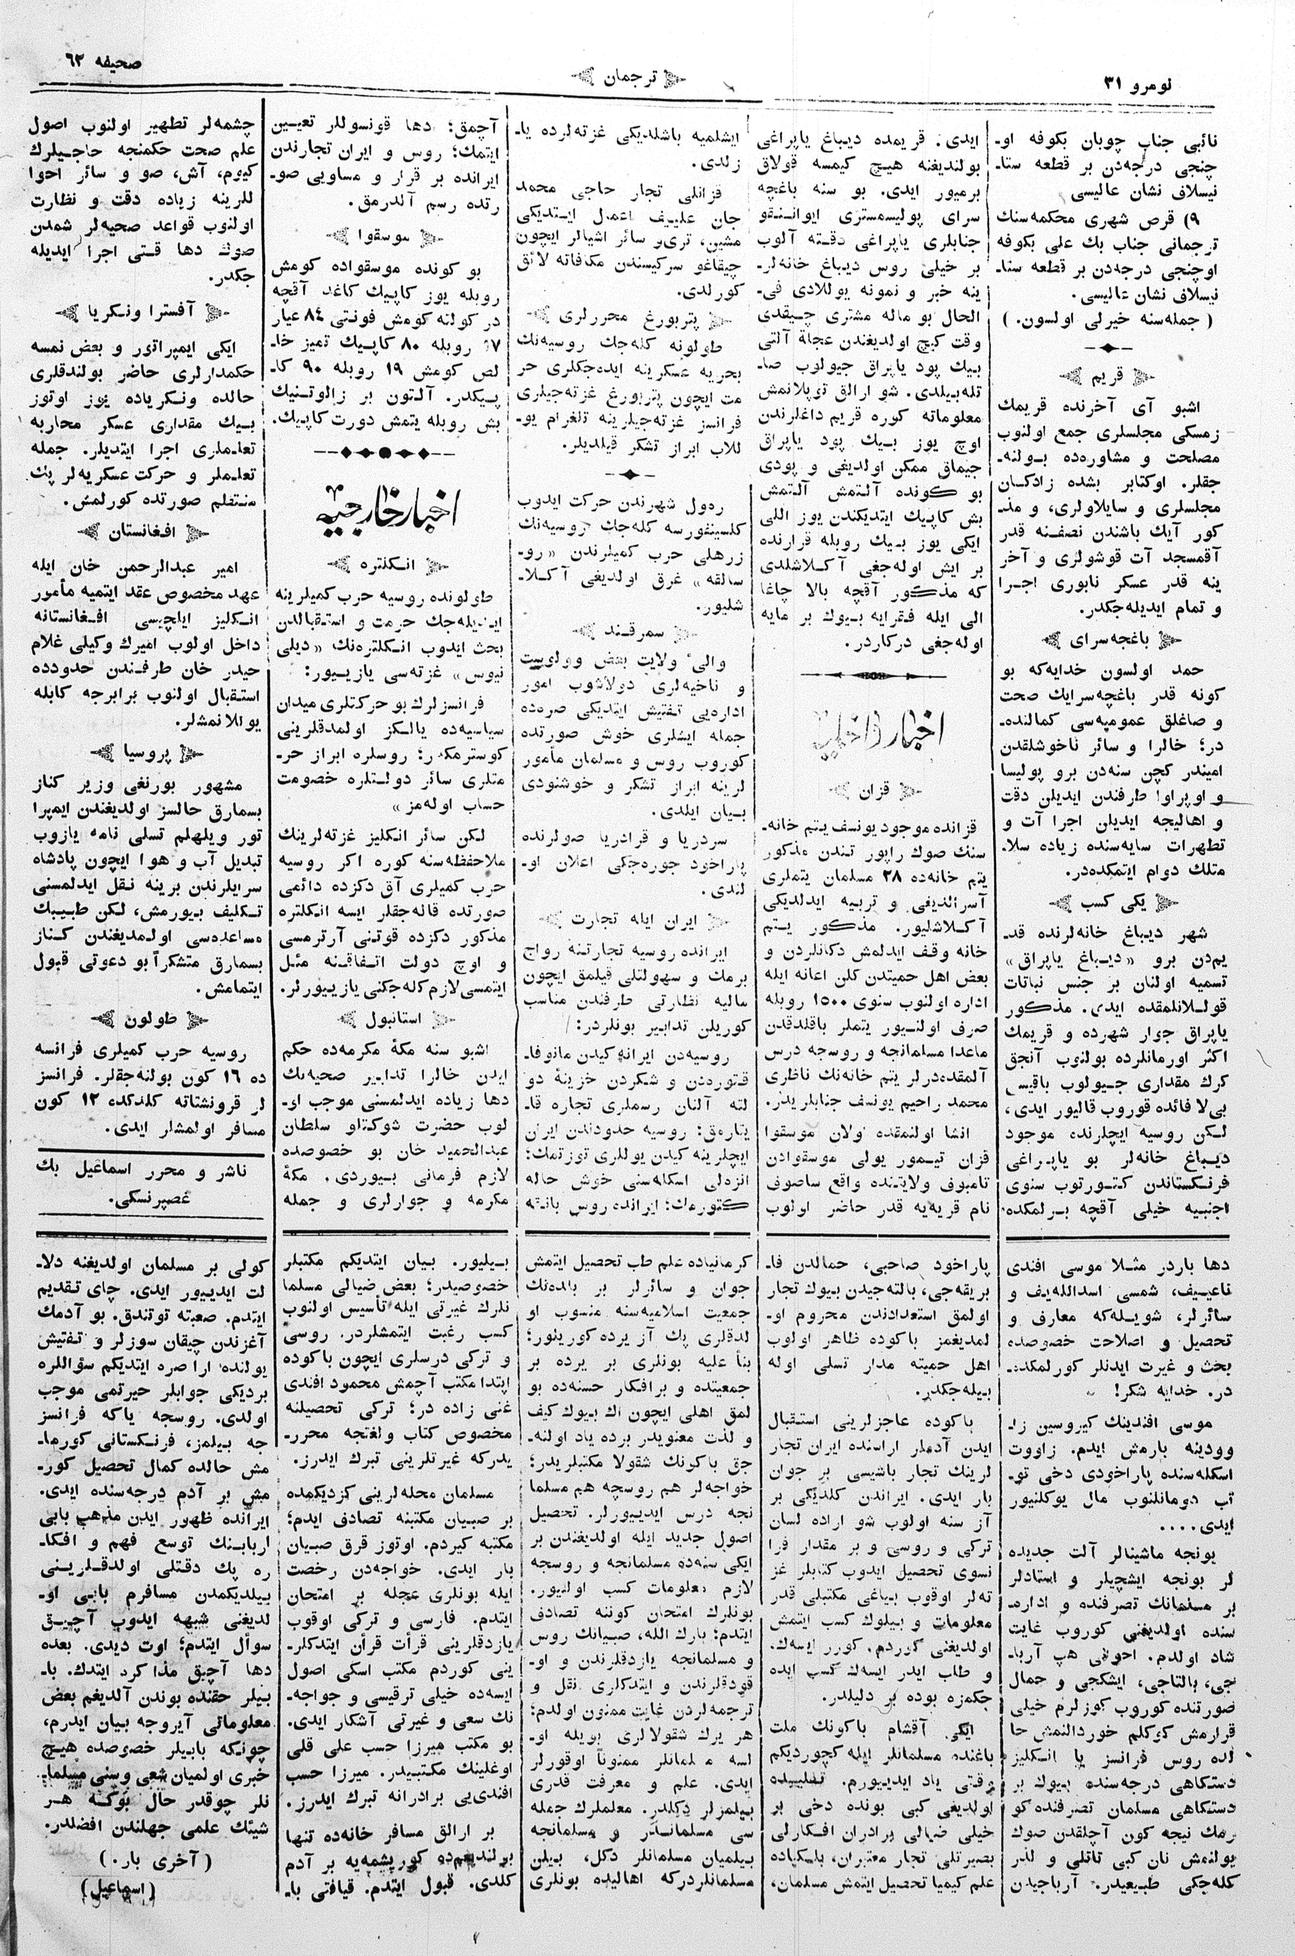 نومرو ٣١
ترجمان
صحیفه ٦٢
نائبی جناب چوبان بکوفه او-
چنجی درجه‌دن بر قطعه ستا-
نیسلاف نشان عالیسی
٩) قرص شهری محکمه‌سنك
ترجمانی جناب بك علی بکوفه
اوچنجی درجه‌دن بر قطعه ستا-
نیسلاف نشان عالیسی.
( جمله‌سنه خیرلی اولسون. )
قریم
اشبو آی آخرنده قریمك
زمسکی مجلسلری جمع اولنوب
مصلحت و مشاوره‌ده بولنه-
جقلر. اوکتابر بشده زادکان
مجلسلری و سایلاولری، و مذ-
کور آیك باشندن نصفنه قدر
آقمسجد آت قوشولری و آخر
ینه قدر عسکر نابوری اجرا
و تمام ایدیله‌جکدر.
باغچه‌سرای
حمد اولسون خدایه‌که بو
کونه قدر باغچه‌سرایك صحت
و صاغلق عمومیه‌سی کمالنده-
در؛ خالرا و سائر ناخوشلقدن
امیندر کچن سنه‌دن برو پولیسا
و اوپراوا طرفندن ایدیلن دقت
و اهالیجه ایدیلن اجرا آت و
تطهرات سایه‌سنده زیاده سلا-
متلك دوام ایتمکده‌در.
یکی کسب
شهر دیباغ خانه‌لرنده قد-
یم‌دن برو «دیباغ یاپراق»
تسمیه اولنان بر جنس نباتات
قوللانلمقده ایدی. مذکور
یاپراق جوار شهرده و قریمك
اکثر اورمانلرده بولنوب آنجق
کرك مقداری جیولوب باقیسی
بی‌لا فائده قوروب قالیور ایدی،
لکن روسیه ایچلرنده موجود
دیباغ خانه‌لر بو یاپراغی
فرنکستاندن کتورتوب سنوی
اجنبیه خیلی آقچه بر‌لمکده
ایدی. قریمده دیباغ یاپراغی
بولندیغنه هیچ کیمسه قولاق
برمیور ایدی. بو سنه باغچه
سرای پولیسمستری ایوانتقو
جنابلری یاپراغی دقته آلوب
بر خیلی روس دیباغ خانه‌لر-
ینه خبر و نمونه یوللادی فی-
الحال بو ماله مشتری چیقدی
وقت کیچ اولدیغندن عجلة آلتی
بیك پود یاپراق جیولوب صا-
تله‌بیلدی. شو ارالق توپلانمش
معلوماته کوره قریم داغلرندن
اوچ یوز بیك پود یاپراق
جیماق ممکن اولدیغی و پودی
بو کونده آلتمش آلتمش
بش کاپیك ایتدیکندن یوز اللی
ایکی یوز بیك روبله قرارنده
بر ایش اوله‌جغی آکلاشلدی
که مذکور آقچه بالا چاغا
الی ایله فقرایه بیوك بر مایه
اوله‌جغی درکاردر.
اخبار داخلیه
قزان
قزانده موجود یوسف یتم خانه-
سنك صوك راپور تندن مذکور
یتم خانه‌ده ٢٨ مسلمان یتملری
آسرالدیغی و تربیه ایدلدیکی
آکلاشلیور. مذکور یتم
خانه وقف ایدلمش دکانلردن و
بعض اهل حمیتدن کلن اعانه ایله
اداره اولنوب سنوی ١٥٠٠ روبله
صرف اولنیور یتملر باقلدقدن
ماعدا مسلمانجه و روسجه درس
آلمقده‌درلر یتم خانه‌نك ناظری
محمد راحیم یوسف جنابلریدر.
انشا اولنمقده اولان موسقوا
قزان تیمور یولی موسقوادن
تامبوف ولایتنده واقع ساصوف
نام قریه‌یه قدر حاضر اولوب
ایشلمیه باشلدیکی غزته‌لرده یا-
زلدی.
قزانلی تجار حاجی محمد
جان علییف اعمل ایتدیکی
مشین، تری‌و سائر اشیالر ایچون
چیقاغو سرکیسندن مکافاته لائق
کورلدی.
پتربورغ محررلری
طولونه کله‌جك روسیه‌نك
بحریه عسکرینه ایده‌جکلری حر
مت ایچون پتربورغ غزته‌جیلری
فرانسز غزته‌جیلرینه تلغرام یو-
للاب ابراز تشکر قیلدیلر.
ره‌ول شهرندن حرکت ایدوب
کلسینفورسه کله‌جك روسیه‌نك
زرهلی حرب کمیلرندن «رو-
سالقه» غرق اولدیغی آکلا-
شلیور.
سمرقند
والی ولایت بعض وولوست
و ناخیه‌لری دولاشوب امور
اداره‌یی تفتیش ایتدیکی صره‌ده
جمله ایشلری خوش صورتده
کوروب روس و مسلمان مأمور
لرینه ابراز تشکر و خوشنودی
بیان ایلدی.
سردریا و قرادریا صولرنده
پاراخود جوره‌جکی اعلان او-
لندی.
ایران ایله تجارت
ایرانده روسیه تجارتنه رواج
برمك و سهولتلی قیلمق ایچون
مالیه نظارتی طرفندن مناسب
کوریلن تدابیر بونلردر:
روسیه‌دن ایرانه کیدن مانوفا-
قتوره‌دن و شکردن خزینه دو
لته آلنان رسملری تجاره قا-
یتارمق: روسیه حدودندن ایران
ایچلرینه کیدن یوللری توزتمك؛
انزه‌لی اسکله‌سنی خوش حاله
کتورمك؛ ایرانده روس بانقه
آچمق؛ دها قونسوللر تعیین
ایتمك؛ روس و ایران تجارندن
ایرانده بر قرار و مساویی صو-
رتده رسم آلدرمق.
موسقوا
بو کونده موسقواده کومش
روبله یوز کاپیك کاغد آقچه
در کولنه کومش فونتی ٨٤ عیار
١٧ روبله ٨٠ کاپیك تمیز خا-
لص کومش ١٩ روبله ٩٠ کا-
پیکدر. آلتون بر زالوتنیك
بش روبله یتمش دورت کاپیك.
اخبار خارجیه
انکلتره
طولونده روسیه حرب کمیلرینه
ایدیله‌جك حرمت و استقبالدن
بحث ایدوب انکلتره‌نك «دیلی
نیوس» غزته‌سی یازییور:
فرانسزلرك بو حرکتلری میدان
سیاسیه‌ده یالکز اولمدقلرینی
کوسترمکدر؛ روسلره ابراز حر-
متلری سائر دولتلره خصومت
حساب اوله‌مز»
لکن سائر انکلیز غزته‌لرینك
ملاحظه‌سنه کوره اکر روسیه
حرب کمیلری آق دکزده دائمی
صورتده قاله‌جقلر ایسه انکلتره
مذکور دکزده قوتنی آرترمسی
و اوچ دولت اتفاقنه مثل
ایتمسی لازم کله‌جکنی یازییورلر.
استانبول
اشبو سنه مکۀ مکرمه‌ده حکم
ایدن خالرا تدابیر صحیه‌نك
دها زیاده ایدلمسنی موجب او-
لوب حضرت شوکتلو سلطان
عبدالحمید خان بو خصوصده
لازم فرمانی بیوردی. مکۀ
مکرمه و جوارلری و جمله
چشمه‌لر تطهیر اولنوب اصول
علم صحت حکمنجه حاجیلرك
کیوم، آش، صو و سائر احوا
للرینه زیاده دقت و نظارت
اولنوب قواعد صحیه‌لر شمدن
صوك دها قتی اجرا ایدیله
جکدر.
آفسترا ونکریا
ایکی ایمپراتور و بعض نمسه
حکمدارلری حاضر بولندقلری
حالده ونکریاده یوز اوتوز
بیك مقداری عسکر محاربه
تعلملری اجرا ایتدیلر. جمله
تعلملر و حرکت عسکریه‌لر پك
منتظم صورتده کورلمش.
افغانستان
امیر عبدالرحمن خان ایله
عهد مخصوص عقد ایتمیه مأمور
انکلیز ایلچیسی افغانستانه
داخل اولوب امیرك وکیلی غلام
حیدر خان طرفندن حدودده
استقبال اولنوب برابرجه کابله
یوللانمشلر.
پروسیا
مشهور بورنغی وزیر کناز
بسمارق حالسز اولدیغندن ایمپرا
تور ویلهلم تسلی نامه یازوب
تبدیل آب و هوا ایچون پادشاه
سرایلرندن برینه نقل ایدلمسنی
تکلیف بیورمش، لکن طبیبك
مساعده‌سی اولمدیغندن کناز
بسمارق متشکراً بو دعوتی قبول
ایتمامش.
طولون
روسیه حرب کمیلری فرانسه
ده ١٦ کون بولنه‌جقلر. فرانسز
لر قرونشتاته کلدکده ١٢ کون
مسافر اولمشلر ایدی.
ناشر و محرر اسماعیل بك
غصپرنسکی.
دها باردر مثلا موسی افندی
ناعییف، شمسی اسدالله‌یف و
سائرلر، شویله‌که معارف و
تحصیل و اصلاحت خصوصده
بحث و غیرت ایدنلر کورلمکده-
در. خدایه شکر!
موسی افندینك کیروسین زا-
وودینه بارمش ایدم. زاووت
اسکله‌سنده پاراخودی دخی تو-
تب دومانلنوب مال یوکلنیور
ایدی....
یونجه ماشینالر آلت جدیده
لر یونجه ایشچیلر و استادلر
بر مسلمانك تصرفنده و اداره-
سنده اولدیغنی کوروب غایت
شاد اولدم. احوقی هپ آربا-
بجی، بالتاجی، ایشکجی و حمال
صورتنده کوروب کوزلرم خیلی
قرارمش کوکلم خوردالنمش حا
لده روس فرانسز یا انکلیز
دستکاهی درجه‌سنده بیوك بر
دستکاهی مسلمان تصرفنده کو
رمك نیجه کون آچلقدن صوك
یولنمش نان کبی تاتلی و لذر
کله‌جکی طبیعیدر. آرباجیدن
پاراخود صاحبی، حمالدن فا-
بریقه‌جی، بالته‌جیدن بیوك تجار
اولمق استعدادندن محروم او-
لمدیغمز باکوده ظاهر اولوب
اهل حمیته مدار تسلی اوله
بیله‌جکدر.
باکوده عاجزلرینی استقبال
ایدن آدملر اراسنده ایران تجار
لرینك تجار باشیسی بر جوان
بار ایدی. ایراندن کلدیکی بر
آز سنه اولوب شو اراده لسان
ترکی و روسی و بر مقدار فرا
نسوی تحصیل ایدوب کتابلر غز
ته‌لر اوقوب بیاغی مکتبلی قدر
معلومات و بیلوك کسب ایتمش
اولدیغنی کوردم. کورر ایسه‌ك.
و طلب ایدر ایسه‌ك کسب ایده
جکمزه بوده بر دلیلدر.
ایکی آقشام باکونك ملت
باغنده مسلمانلر ایله کچوردیکم
وقتی یاد ایدییورم. تفلیسده
اولدیغی کبی بونده دخی بر
خیلی ضیالی برادران افکارلی
بصیرتلی تجار معتبران، بلکیاده
علم کیمیا تحصیل ایتمش مسلمان،
کرمانیاده علم طب تحصیل ایتمش
جوان و سائرلر بر بلده‌نك
جمعیت اسلامیه‌سنه منسوب او
لدقلری پك آز یرده کورینور؛
بنأ علیه بونلری بر یرده بر
جمعیتده و برافکار حسنه‌ده بو
لمق اهلی ایچون اك بیوك کیف
و لذت معنویدر برده یاد اولنه-
جق باکونك شقولا مکتبلریدر؛
خواجه‌لر هم روسچه هم مسلما
نجه درس ایدییورلر. تحصیل
اصول جدید ایله اولدیغندن بر
ایکی سنه‌ده مسلمانجه و روسجه
لازم معلومات کسب اولنیور.
بونلرك امتحان کوننه تصادف
ایتدم؛ بارك الله، صبیانك روس
و مسلمانجه یازدقلرندن و او-
قودقلرندن و ایتدکلری نقل و
ترجمه‌لردن غایت ممنون اولدم؛
هر یرك شقولالری بویله او-
لسه مسلمانلر ممنوناً اوقورلر
ایدی. علم و معرفت قدری
بیلمزلر دکلدر. معلملرك جمله
سی مسلماندر و مسلمانجه
بیلمیان مسلمانلر دکل، بیلن
مسلمانلردرکه اهالیده بونلری
بیلیور. بیان ایتدیکم مکتبلر
خصوصیدر؛ بعض ضیالی مسلما
نلرك غیرتی ایله تأسیس اولنوب
کسب رغبت ایتمشلردر. روسی
و ترکی درسلری ایچون باکوده
ایتدا مکتب آچمش محمود افندی
غنی زاده در؛ ترکی تحصیلنه
مخصوص کتاب ولغتجه محرر-
یدرکه غیرتلرینی تبرك ایدرز.
مسلمان محله‌لرینی کزدیکمده
بر صبیان مکتبنه تصادف ایدم؛
مکتبه کیردم. اوتوز قرق صبیان
بار ایدی. خواجه‌دن رخصت
ایله بونلری عجله بر امتحان
ایتدم. فارسی و ترکی اوقوب
یازدقلرینی قرأت قرآن ایتدکلر-
ینی کوردم مکتب اسکی اصول
ایسه‌ده خیلی ترقیسی و خواجه-
نك سعی و غیرتی آشکار ایدی.
بو مکتب میرزا حسب علی قلی
اوغلینك مکتبیدر. میرزا حسب
افندی‌یی برادرانه تبرك ایدرز.
بر ارالق مسافر خانه‌ده تنها
برلندیغمدو کورپشمه‌یه بر آدم
کلدی. قبول ایتدم. قیافتی با-
کولی بر مسلمان اولدیغنه دلا-
لت ایدییور ایدی. چای تقدیم
ایتدم. صعبته توتندق. بو آدمك
آغزندن چیقان سوزلر و تفتیش
یولنده اراصره ایتدیکم سؤاللره
بردیکی جوابلر حیرتمی موجب
اولدی. روسجه یاکه فرانسز
جه بیلمز، فرنکستانی کورما-
مش حالده کمال تحصیل کور-
مش بر آدم درجه‌سنده ایدی.
ایرانده ظهور ایدن مذهب بابی
اربابنك توسع فهم و افکا-
ره پك دقتلی اولدقلرینی
بیلدیکمدن مسافرم بابی او-
لدیغنی شبهه ایدوب آچیق
سوأل ایتدم؛ اوت دیدی. بعده
دها آچیق مذاکره ایتدك. با-
بیلر حقنده بوندن آلدیغم بعض
معلوماتی آیروجه بیان ایدرم،
چونکه بابیلر خصوصده هیچ
خبری اولمیان شعی وسنی مسلما-
نلر چوقدر حال بوکه هر
شیئك علمی جهلندن افضلدر.
(آخری بار.)
(اسماعیل)